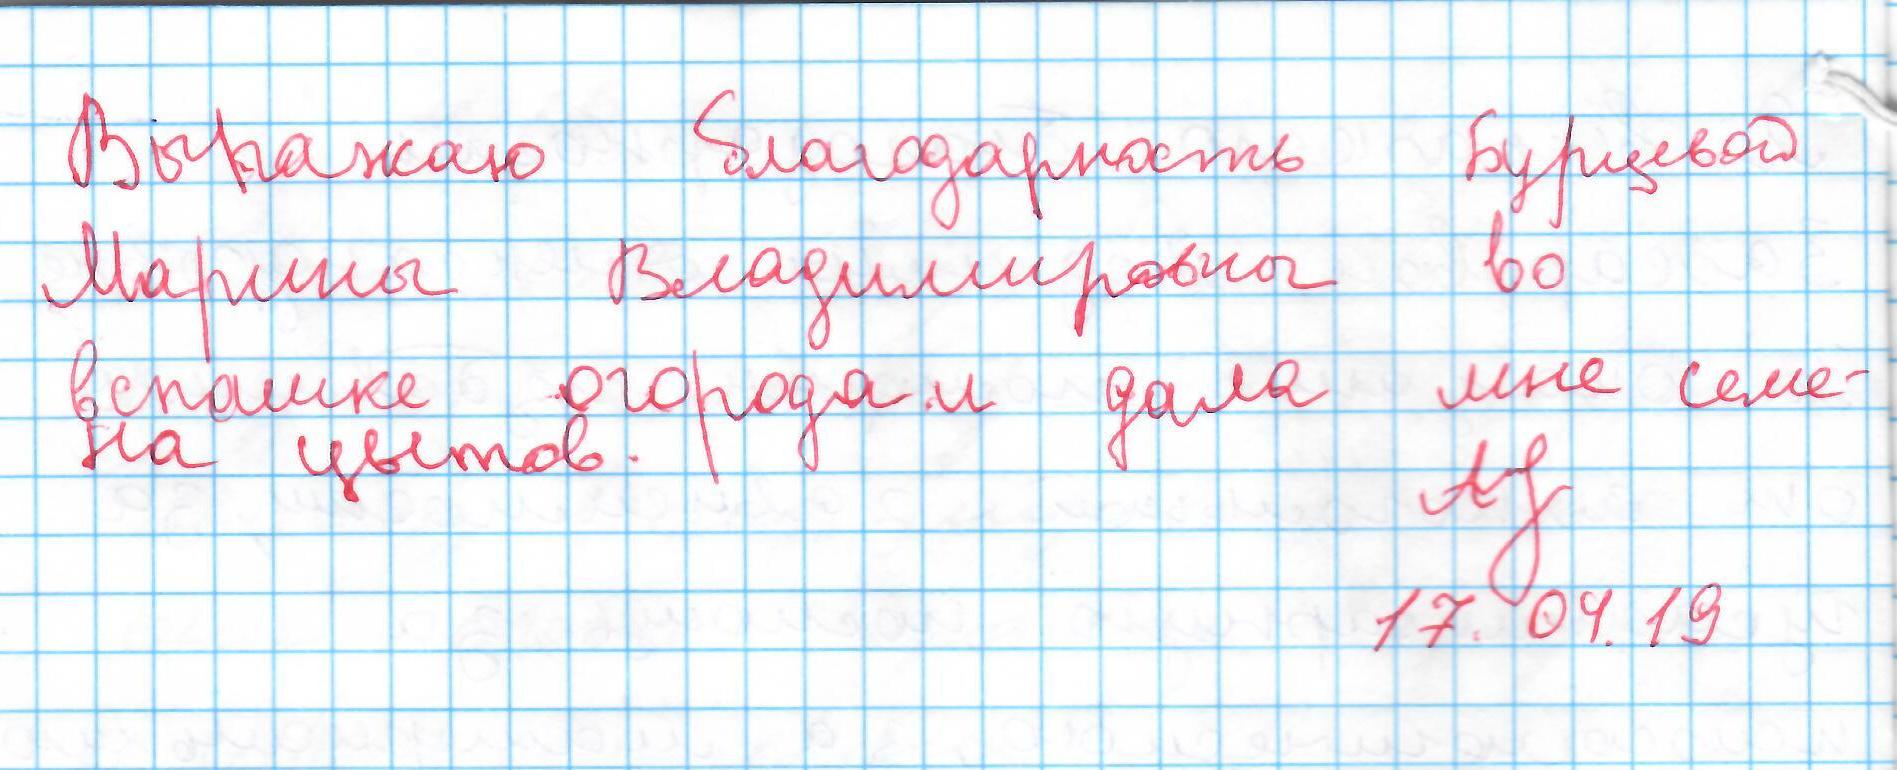 Выражаю благодарность Бурцевой
Марины Владимировны во
вспашке огорода и дала мне семе-
на цветов.
17.04.19